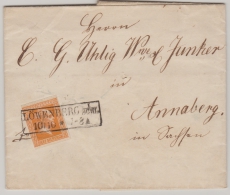 Herrn
C. G. Uhlig Wwe & Junker
zu
Annaberg.
in Sachsen
LÖWENBERG
10 10 * 7-8